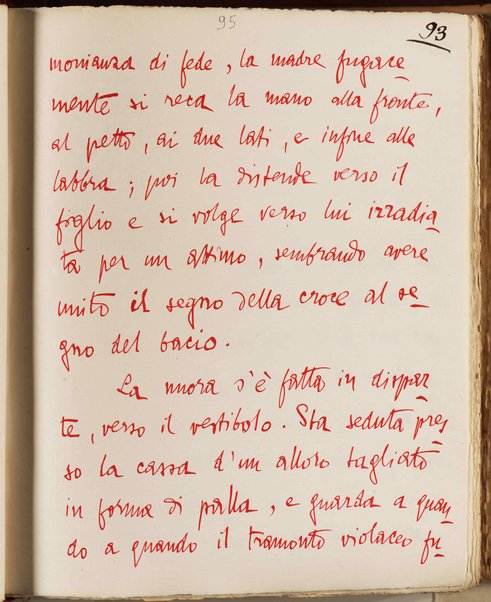 95
93
monianza di fede, la madre fugace
mente si reca la mano alla fronte,
al petto, ai due lati, e infine alle
labbra; poi la distende verso il
figlio e si volge verso lui irradia
ta per un attimo, sembrando avere
unito il segno della croce al se
gno del bacio.
La nuora s'è fatta in dispar
te, verso il vestibolo. Sta seduta pres
so la cassa d'un alloro tagliato
in forma di palla, e guarda a quan
do a quando il tramonto violaceo fu